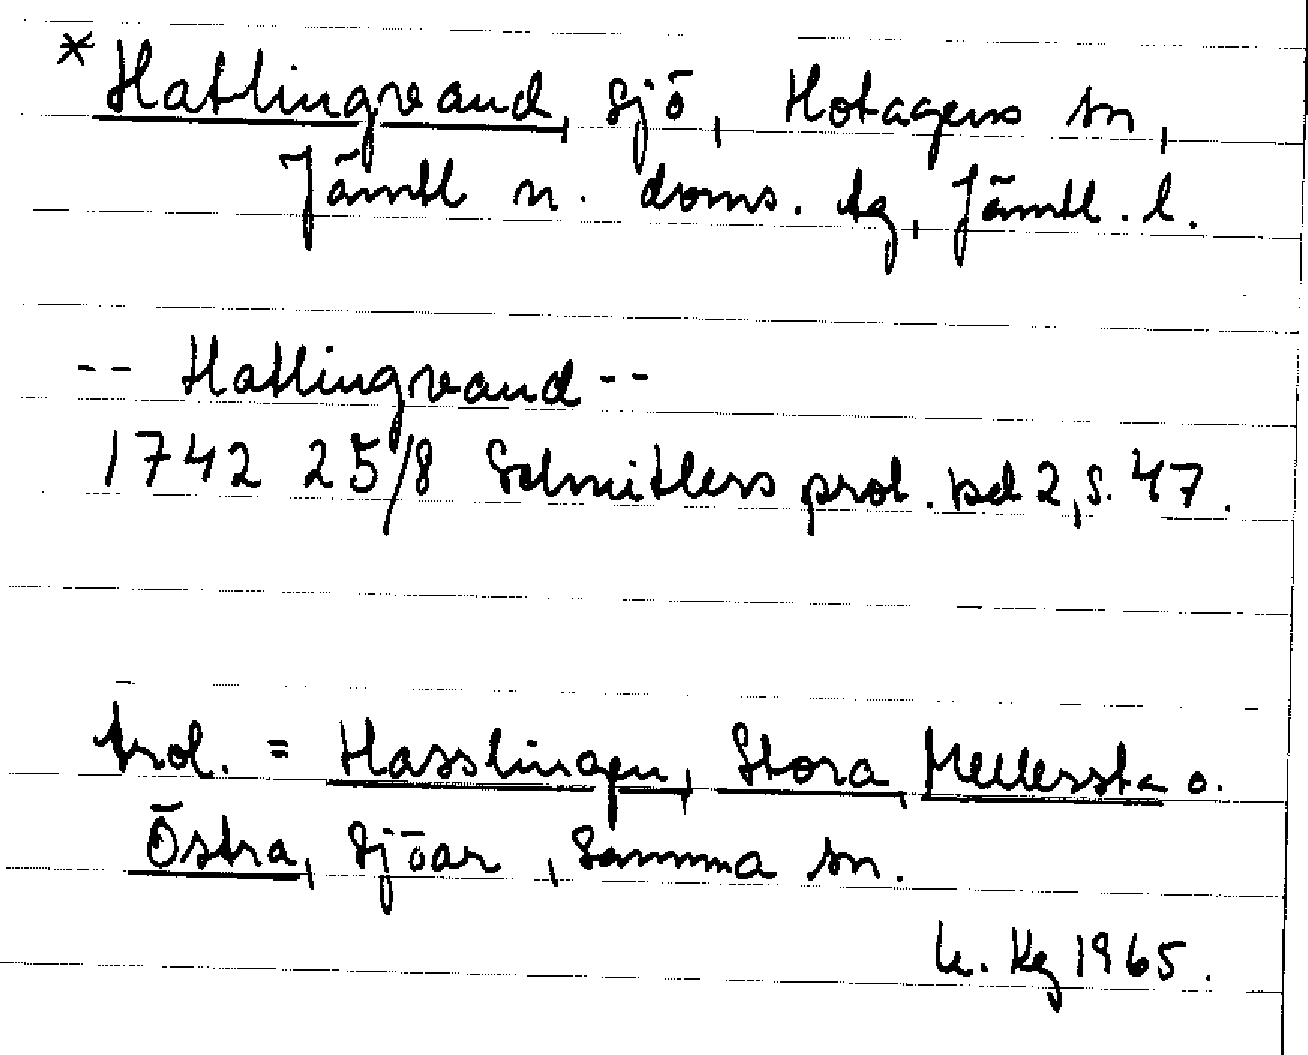 * Hatlingvand, sjö, Hotagens sn,
Jämtl n. doms. tg, Jämtl. l.
-- Hatlingvand --
1742 25/8 Schnitlers prot. bd 2, s. 47.
trol. = Hasslingen, Stora, Mellersta o.
Östra, sjöar, samma sn.
1965.